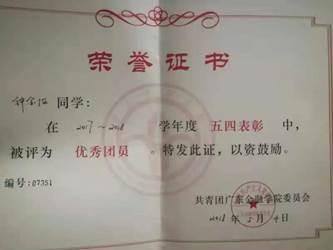 荣誉证书
同学:
在 2017～2018 学年度 五四表彰 中,
被评为 优秀团员 。特发此证,以资鼓励。
编号:07351
共青团广东金融学院委员会
2018 年 5 月 4 日